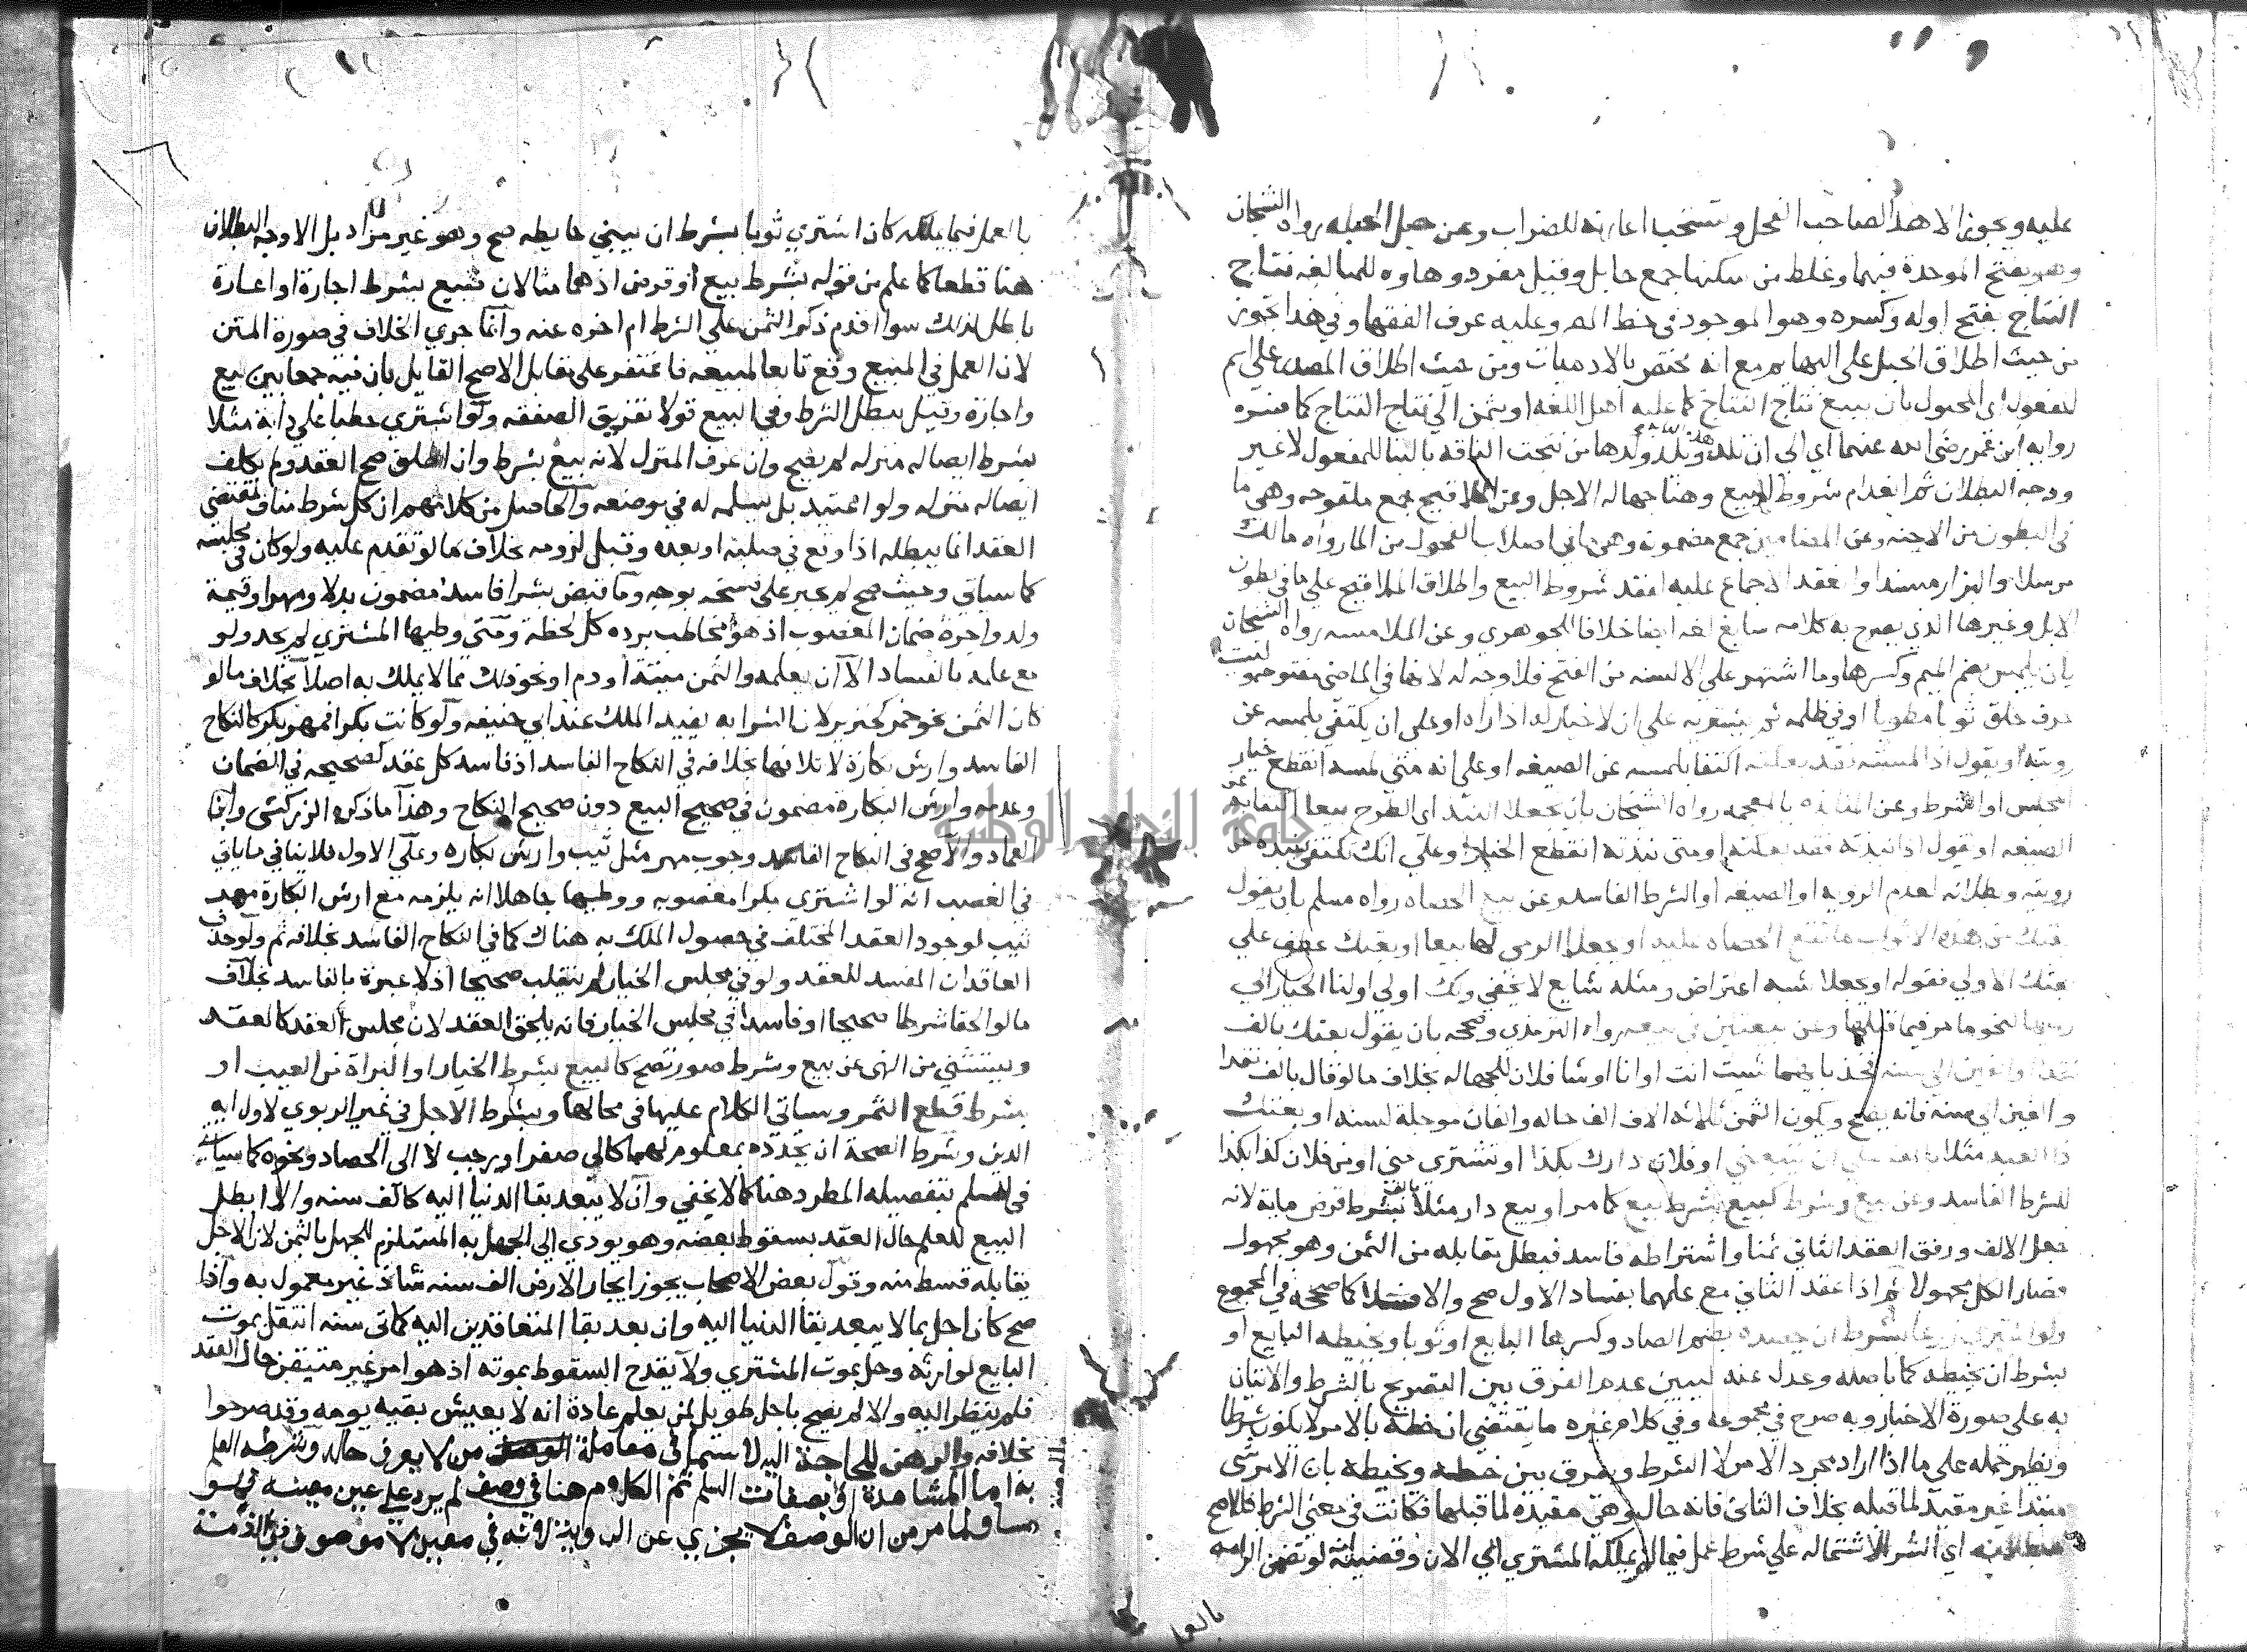 عليه ويجوز الاهدا لصاحب الفحل وتستحب اعارته للضراب وعن حبل الحبله رواه الشيخان
وهو بفتح الموحدة فيهما وغلط من سكنها جمع حابل وقيل مفرد وهاوه للمبالغه نتاج
النتاج بفتح اوله وكسره وهو الموجود في خط المصـ وعليه عرف الفقها وفي هذا تجوز
من حيث اطلاق الحبل على البهايم مع انه مختص بالادميات ومن حيث اطلاق المصدر على اسم
المفعول اي المحبول بان يبيع نتاج النتاج كما عليه اهل اللغه او بثمن الي نتاج النتاج كما فسره
روايه ابن عمر رضي الله عنهما اي الي ان تلد هذه الدابة ويلد ولدها من نتجت الناقه بالبنا للمفعول لا غير
ووجه البطلان ثم انعدام شروط البيع وهنا جهاله الاجل وعن الملاقيح جمع ملقوحه وهي ما
في البطون من الاجنه وعن المضامين جمع مضمونه وهي ما في اصلاب الفحول من الما رواه مالك
مرسلا والبزار مسندا وانعقد الاجماع عليه لفقد شروط البيع واطلاق الملاقيح على ما في بطون
الابل وغيرها الذي يصرح به كلامه سايغ لغه ايضا خلافا للجوهري وعن الملامسه رواه الشيخان
بان يلمس بضم الميم وكسرها وما اشتهر على الالسنه من الفتح فلا وجه له لانها في الماضي مفتوحه وليست
حرف حلق ثوبا مطويا او في ظلمه ثم يشتريه على ان لا خيار له اذا راه او على ان يكتفي بلمسه عن
رويته او يقول اذا لمسته فقد بعتكه اكتفا بلمسه عن الصيغه او على انه متى لمسه انقطع خيار
المجلس او الشرط وعن المنابذه بالمعجمه رواه الشيخان بان يجعلا النبذ اي الطرح بيعا اكتفا به عن
الصيغه او يقول اذا نبذته فقد بعتكه او متى نبذته انقطع الخيار او على انك تكتفي بنبذه عن
رويته وبطلانه لعدم الرويه او الصيغه او للشرط الفاسد وعن بيع الحصاه رواه مسلم بان يقول
بعتك من هذه الاثواب ما تقع الحصاه عليه او يجعلا الرمي لها بيعا او بعتك عطف على
بعتك الاولي فقوله او يجعلا شبه اعتراض ومثله شايع لا يخفي ولك اولي اولنا الخيار الي
رميها لنحو ما مر فيما قبلها وعن بيعتين في بيعه رواه الترمذي وصححه بان يقول بعتك بالف
نقدا او الفين الي سنه فخذ بايهما شيت انت او انا او شا فلان للجهاله بخلاف ما لو قال بالف نقدا
والفين الي سنه فانه يصح ويكون الثمن ثلاثه الاف الف حاله والفان موجلة لسنه او بعتك
ذا العبد مثلا بالف على ان تبيعني او فلان دارك بكذا او تشتري مني او من فلان كذا بكذا
للشرط الفاسد وعن بيع وشرط كبيع بشرط بيع كما مر او بيع دار مثلا بالف بشرط قرض مايه لانه
جعل الالف ورفق العقد الثاني ثمنا واشتراطه فاسد فبطل مقابله من الثمن وهو مجهول
فصار الكل مجهولا ثم اذا عقد الثاني مع علمهما بفساد الاول صح والا فلا كما صححه في المجموع
ولو اشتري زرعا بشرط ان يحصده بضم الصاد وكسرها البايع او ثوبا ويخيطه البايع او
بشرط ان يخيطه كما باصله وعدل عنه ليبين عدم الفرق بين التصريح بالشرط والاتيان
به على صورة الاخبار وبه صرح في مجموعه وفي كلام غيره ما يقتضي ان خطه بالامر لا يكون شرطا
ويظهر حمله على ما اذا اراد مجرد الامر لا الشرط ويفرق بين خطه ويخيطه بان الامر شي
مبتدا غير مقيد لما قبله بخلاف الثاني فانه حال وهي مقيدة لما قبلها فكانت في معني الشرط فالاصح
بطلانه اي الشرا لاشتماله على شرط عمل فيما لم يملكه المشتري الي الان وقضيته انه لو تضمن الزامه
بالعمل
بالعمل فيما يملكه كان اشتري ثوبا بشرط ان يبني حايطه صح وهو غير مراد بل الاوجه البطلان
هنا قطعا كما علم من قوله بشرط بيع او قرض اذ هما مثالان فبيع بشرط اجارة او اعارة
باطل لذلك سوا اقدم ذكر الثمن على الشرط ام اخره عنه وانما جري الخلاف في صورة المتن
لان العمل في المبيع وقع تابعا لمبيعه فاغتفر على مقابل الاصح القايل بان فيه جمعا بين بيع
واجارة وقيل يبطل الشرط وفي البيع قولا تفريق الصفقه ولو اشتري حطبا علي دابه مثلا
بشرط ايصاله منزله لم يصح وان عرف المنزل لانه بيع بشرط وان اطلق صح العقد ولم يكلف
ايصاله منزله ولو اعتيد بل يسلمه له في موضعه والحاصل من كلامهم ان كل شرط مناف لمقتضي
العقد انما يبطله اذا وقع في صلبه او بعده وقبل لزومه بخلاف ما لو تقدم عليه ولو كان في مجلسه
كما سياتي وحيث صح لم يجبر على فسخه بوجه وما قبض بشرا فاسد مضمون بدلا ومهرا وقيمة
ولد واجرة ضمان المغصوب اذ هو مخاطب برده كل لحظة ومتي وطيها المشتري لم يحد ولو
مع علمه بالفساد الا ان يعلمه والثمن ميتة او دم او نحو ذلك مما لا يملك به اصلا بخلاف ما لو
كان الثمن نحو خمر كخنزير لان الشرا به يفيد الملك عند ابي حنيفه ولو كانت بكرا فمهر بكر كالنكاح
الفاسد وارش بكارة لاتلافها بخلافه في النكاح الفاسد اذ فاسد كل عقد كصحيحه في الضمان
وعدمه وارش البكارة مضمون في صحيح البيع دون صحيح النكاح وهذا ما ذكره الزركشي وابن
العماد والاصح في النكاح الفاسد وجوب مهر مثل ثيب وارش بكاره وعلي الاول فلا ينافي ما ياتي
في الغصب انه لو اشتري بكرا مغصوبه ووطيها جاهلا انه يلزمه مع ارش البكارة مهر
ثيب لوجود العقد المختلف في حصول الملك به هناك كما في النكاح الفاسد بخلافه ثم ولو حذف
العاقدان المفسد للعقد ولو في مجلس الخيار لم ينقلب صحيحا اذ لا عبرة بالفاسد بخلاف
ما لو الحقا شرطا صحيحا او فاسدا في مجلس الخيار فانه يلحق العقد لان مجلس العقد كالعقد
ويستثني من النهي عن بيع وشرط صور تصح كالبيع بشرط الخيار او البراة من العيب او
بشرط قطع الثمر وسياتي الكلام عليها في محالها وبشرط الاجل في غير الربوي لاول ايه
الدين وشرط الصحة ان يحدده بمعلوم لهما كالي صفر او رجب لا الى الحصاد ونحوه كما سياتي
في السلم بتفصيله المطرد هنا كما لا يخفي وان لا يبعد بقا الدنيا اليه كالف سنه والا بطل
البيع للعلم حال العقد بسقوط بعضه وهو يودي الي الجهل به المستلزم للجهل بالثمن لان الاجل
يقابله قسط منه وقول بعض الاصحاب يجوز ايجار الارض الف سنه شاذ غير معمول به واذا
صح كان اجل بما لا يبعد بقا الدنيا اليه وان بعد بقا المتعاقدين اليه كماتي سنه انتقل بموت
البايع لوارثه وحل بموت المشتري ولا يقدح السقوط بموته اذ هو امر غير متيقن حال العقد
فلم ينظر اليه والا لم يصح باجل طويل لمن يعلم عادة انه لا يعيش بقيه يومه وقد صرحوا
بخلافه والرهن للحاجة اليه لا سيما في معاملة من لا يعرف حاله وشرطه العلم
به اما المشاهدة او بصفات السلم ثم الكلام هنا في وصف لم يرد علي عين معينه فهو
مساو لما مر من ان الوصف لا يجزي عن الروية لانه في معين لا موصوف في الذمة
جامعة النجاح الوطنية